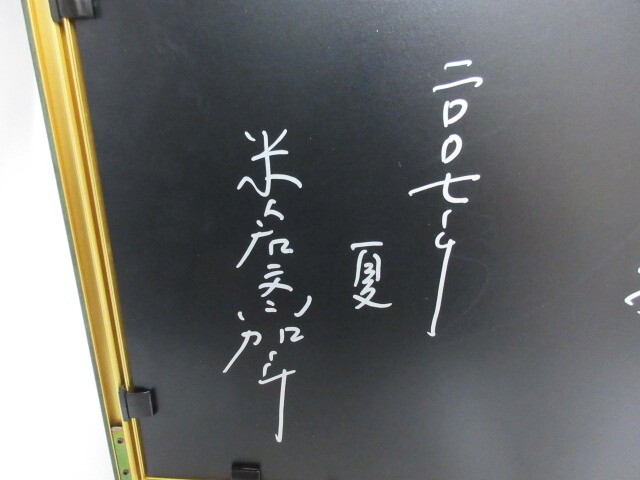 二〇〇七年
夏
米倉斉加年